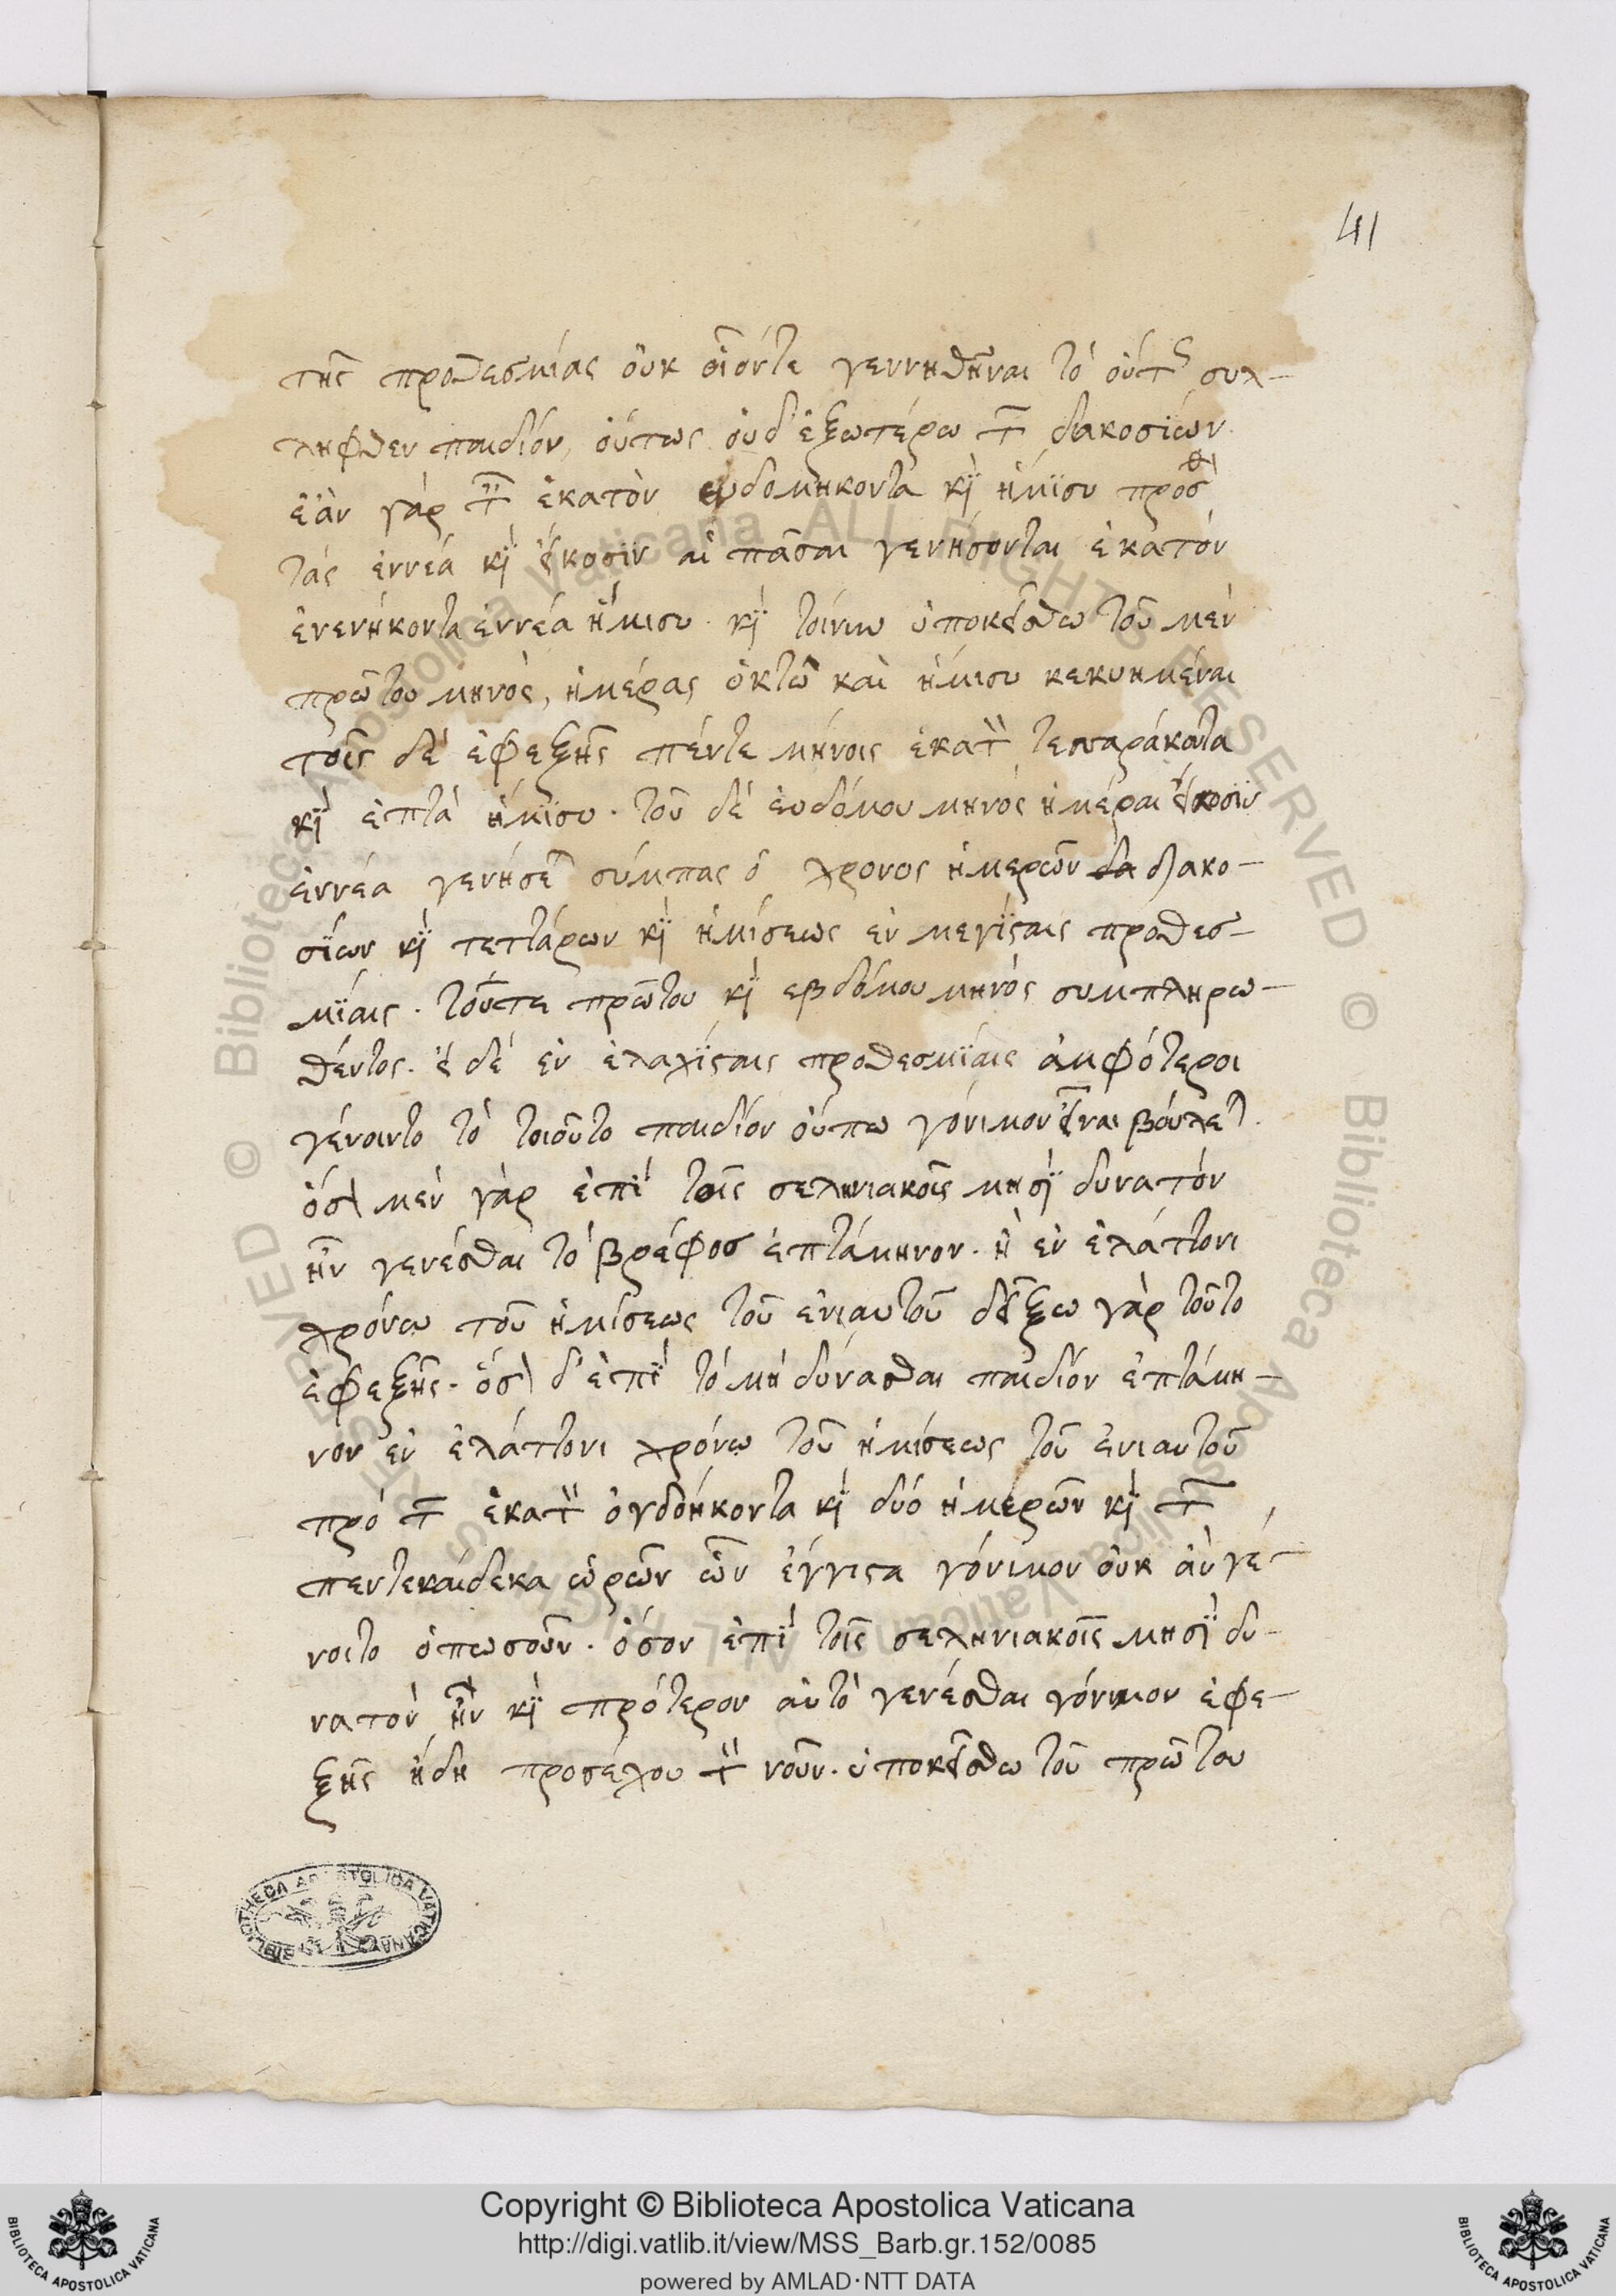 41
τῆς προθεσμίας οὐκ οἷόντε γεννηθῆναι τὸ οὕτως συλ-
ληφθεν παιδίον, οὕτως οὐδ' ἐξωτέρω τῶν διακοσίων.
ἐὰν γὰρ τῶν ἑκατὸν ευδομηκοντα καὶ ἥμισυ πρὸσ
τὰς ἐννέα καὶ εἴκοσιν αἱ πᾶσαι γενήσονται ἑκατόν
ἐνενήκοντα ἐννέα ἥμισυ. καὶ τοίνυν ὑποκείσθω τοῦ μεν
πρῶτου μηνὸς, ἡμέρας ὀκτὼ καὶ ἥμισυ κεκυημέναι
τοῖς δὲ ἐφεξῆς πέντε μήνοις ἑκατὸν τεσσαράκοντα
καὶ ἑπτὰ ἥμισυ. τοῦ δὲ ἑυδόμου μηνὸς ἡμέραι εἴκοσιν
ἐννέα γενήσεται σύμπας ὁ χρονος ἡμερῶν δα διακο-
σίων καὶ τεττάρων καὶ ἡμίσεως ἐν μεγίσταις προθεσ-
μίαις. τοῦτε πρῶτου καὶ εβδόμου μηνὸς συμπληρω-
θέντος. εἰ δὲ ἐν ἐλαχίσταις προθεσμίαις ἀμφότεροι
γένοιντο τὸ τοιοῦτο παιδίον οὔπω γόνιμον εἶναι βούλεται.
ὅσον μὲν γὰρ ἐπὶ τοῖς σεληνιακοῖς μησὶ δυνατόν
ἦν γενέσθαι τὸ βρέφοσ ἑπτάμηνον. ἢ ἐν ἐλάττονι
χρόνω τοῦ ἡμίσεως τοῦ ἐνιαυτοῦ δείξω γὰρ τοῦτο
ἐφεξῆς. ὅσον δ' ἐπὶ τὸ μὴ δύνασθαι παιδίον ἑπτάμη-
νον ἐν ἐλάττονι χρόνω τοῦ ἡμίσεως τοῦ ἐνιαυτοῦ
πρὸ τῶν ἑκατὸν ὀγδοήκοντα καὶ δυό ἡμερῶν καὶ τῶν
πεντεκαίδεκα ὡρῶν ὧν ἔγγιστα γόνιμον οὐκ ἀν γέ-
νοιτο ὁπωσοῦν. ὅσον ἐπὶ τοῖς σεληνιακοῖς μησὶ δυ-
νατὸν ἦν καὶ πρότερον αὐτὸ γενέσθαι γόνιμον ἐφε-
ξῆς ἤδη προσέχου τὸν νοῦν. ὑποκείσθω τοῦ πρῶτου
BIBLIOTHECA APOSTOLICA VATICANA
Copyright © Biblioteca Apostolica Vaticana
http://digi.vatlib.it/view/MSS_Barb.gr.152/0085
powered by AMLAD·NTT DATA